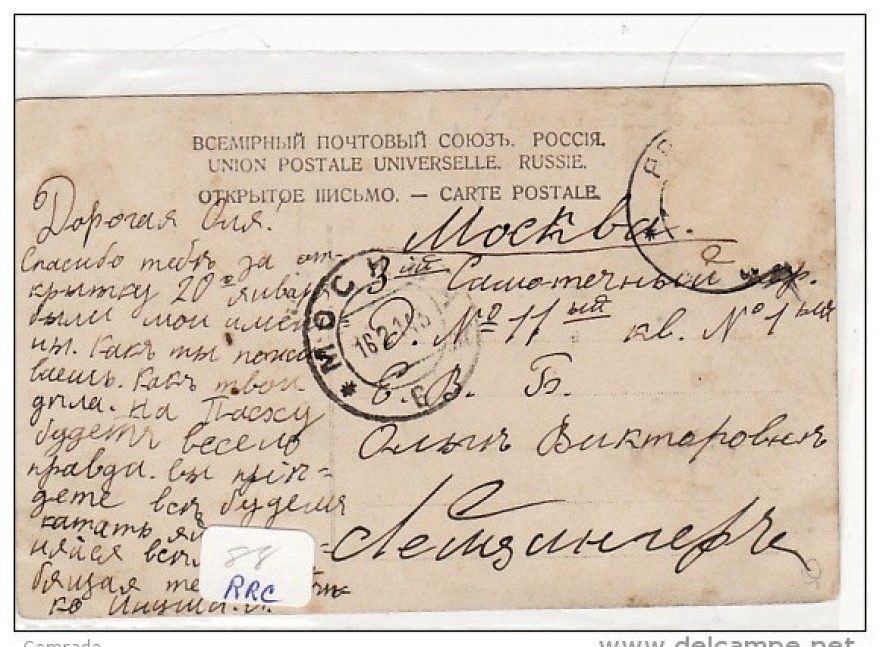 ВСЕМІРНЫЙ ПОЧТОВЫЙ СОЮЗЪ. РОССІЯ.
UNION POSTALE UNIVERSELLE. RUSSIE.
ОТКРЫТОЕ ПИСЬМО. — CARTE POSTALE.
Дорогая Оля!
Спасибо тебѣ за от-
крытку 20го января
были мои имен-
ны. Какъ ты пожи
ваешь. Какъ твои
дѣла. На Пасху
будетъ весело
правда. вы прiѣ-
дете всѣ будемъ
катать
всѣ
бящая
ко
Москва.
3ій Самотечный пр.
д. № 11ый кв. № 1ый
Е. В. Б.
Ольгѣ Викторовнѣ
Лейзингеръ
МОСКВА
16.2.14
88
RRC
Comrade
www.delcampe.net